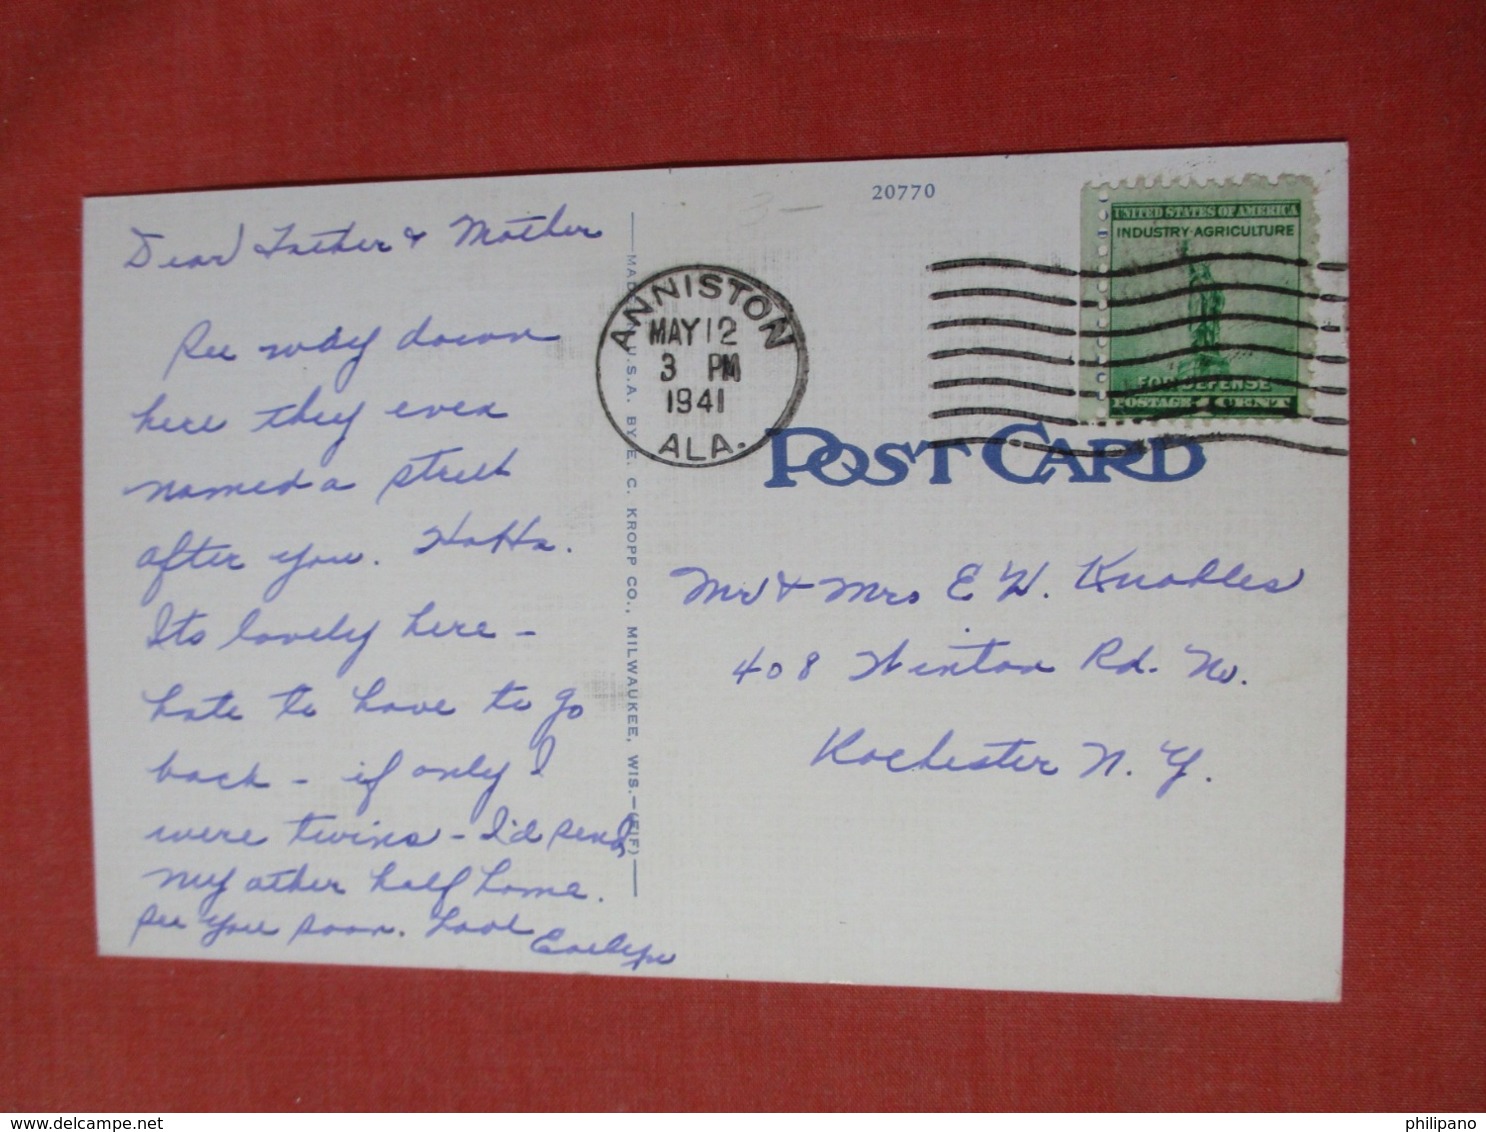 Dear Father & Mother
See way down
here they even
named a street
after you. HaHa.
Its lovely here -
hate to have to go
back - if only I
were twins - I'd send
my other half home.
See you soon. Love
Evelyn
MADE IN U.S.A. BY E. C. KROPP CO., MILWAUKEE, WIS.
20770
ANNISTON
MAY 12
3 PM
1941
ALA.
UNITED STATES OF AMERICA
INDUSTRY·AGRICULTURE
FOR DEFENSE
POSTAGE 1 CENT
POST CARD
Mr & Mrs E W. Knobles
408 Winton Rd. No.
Rochester N. Y.
delcampe.net
philipano